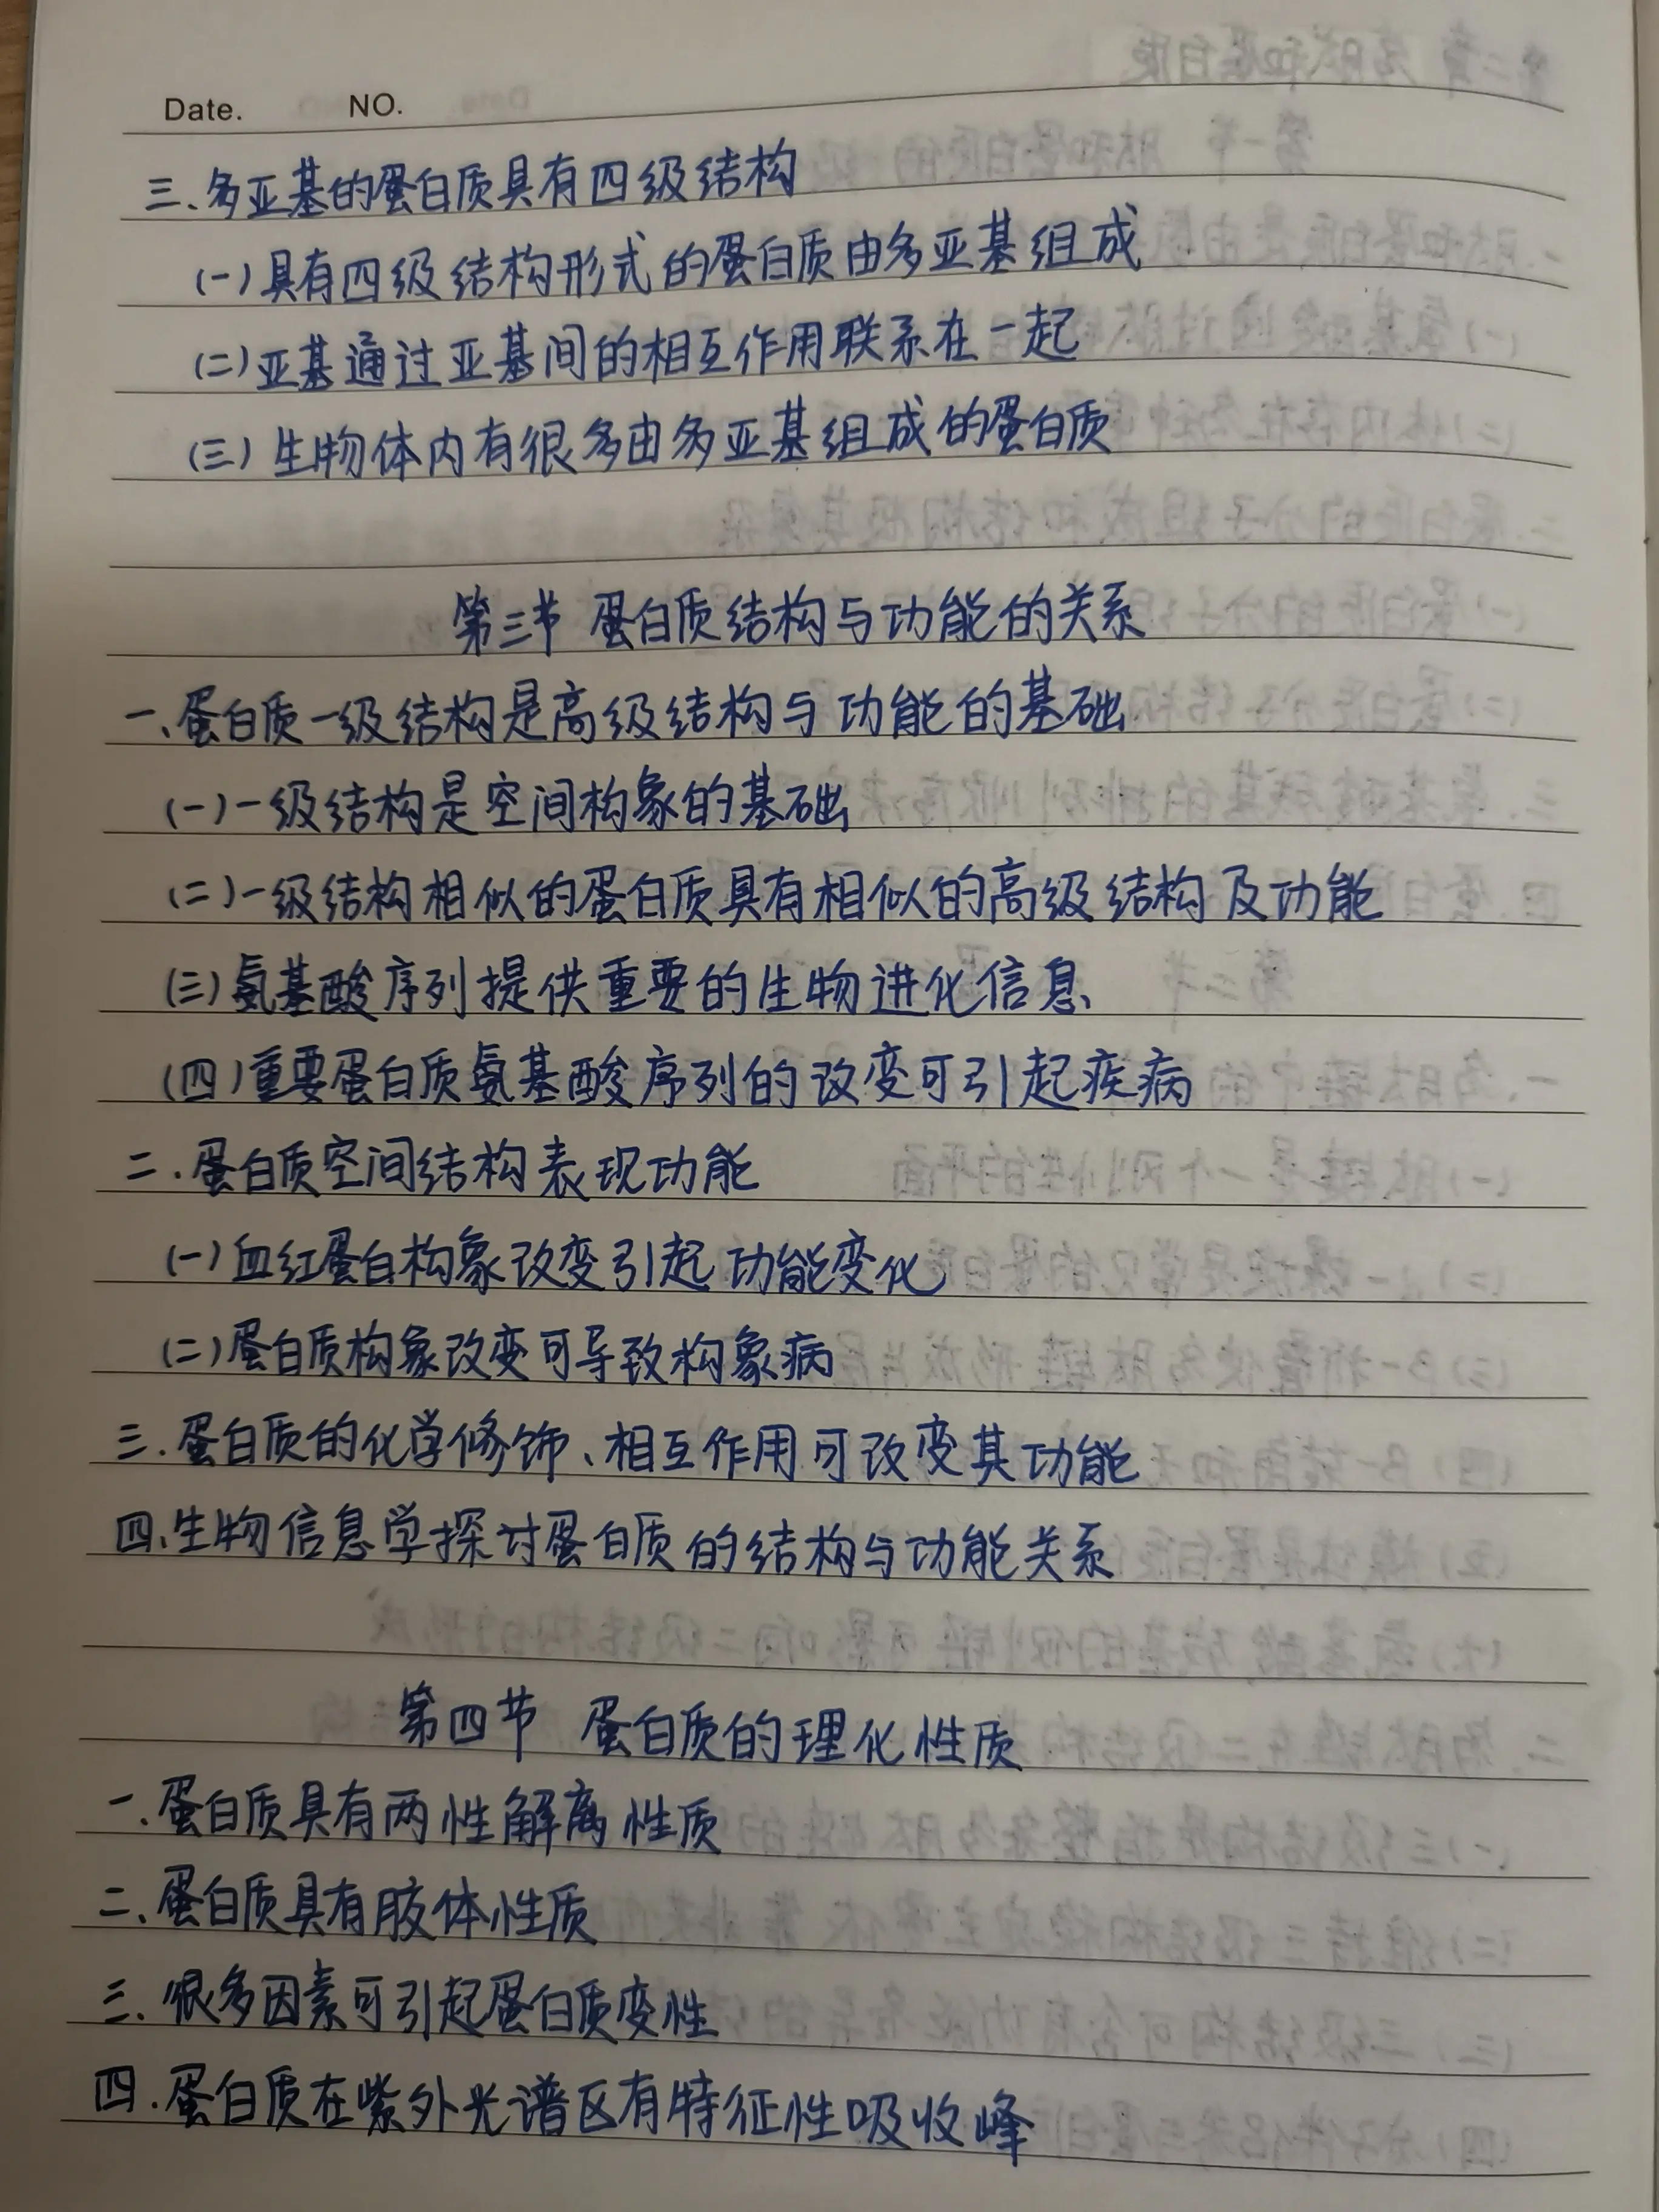 Date. NO.
三、多亚基的蛋白质具有四级结构
(一)具有四级结构形式的蛋白质由多亚基组成
(二)亚基通过亚基间的相互作用联系在一起
(三)生物体内有很多由多亚基组成的蛋白质
第三节 蛋白质结构与功能的关系
一、蛋白质一级结构是高级结构与功能的基础
(一)一级结构是空间构象的基础
(二)一级结构相似的蛋白质具有相似的高级结构及功能
(三)氨基酸序列提供重要的生物进化信息
(四)重要蛋白质氨基酸序列的改变可引起疾病
二.蛋白质空间结构表现功能
(一)血红蛋白构象改变引起功能变化
(二)蛋白质构象改变可导致构象病
三.蛋白质的化学修饰、相互作用可改变其功能
四、生物信息学探讨蛋白质的结构与功能关系
第四节 蛋白质的理化性质
一.蛋白质具有两性解离性质
二、蛋白质具有胶体性质
三.很多因素可引起蛋白质变性
四.蛋白质在紫外光谱区有特征性吸收峰